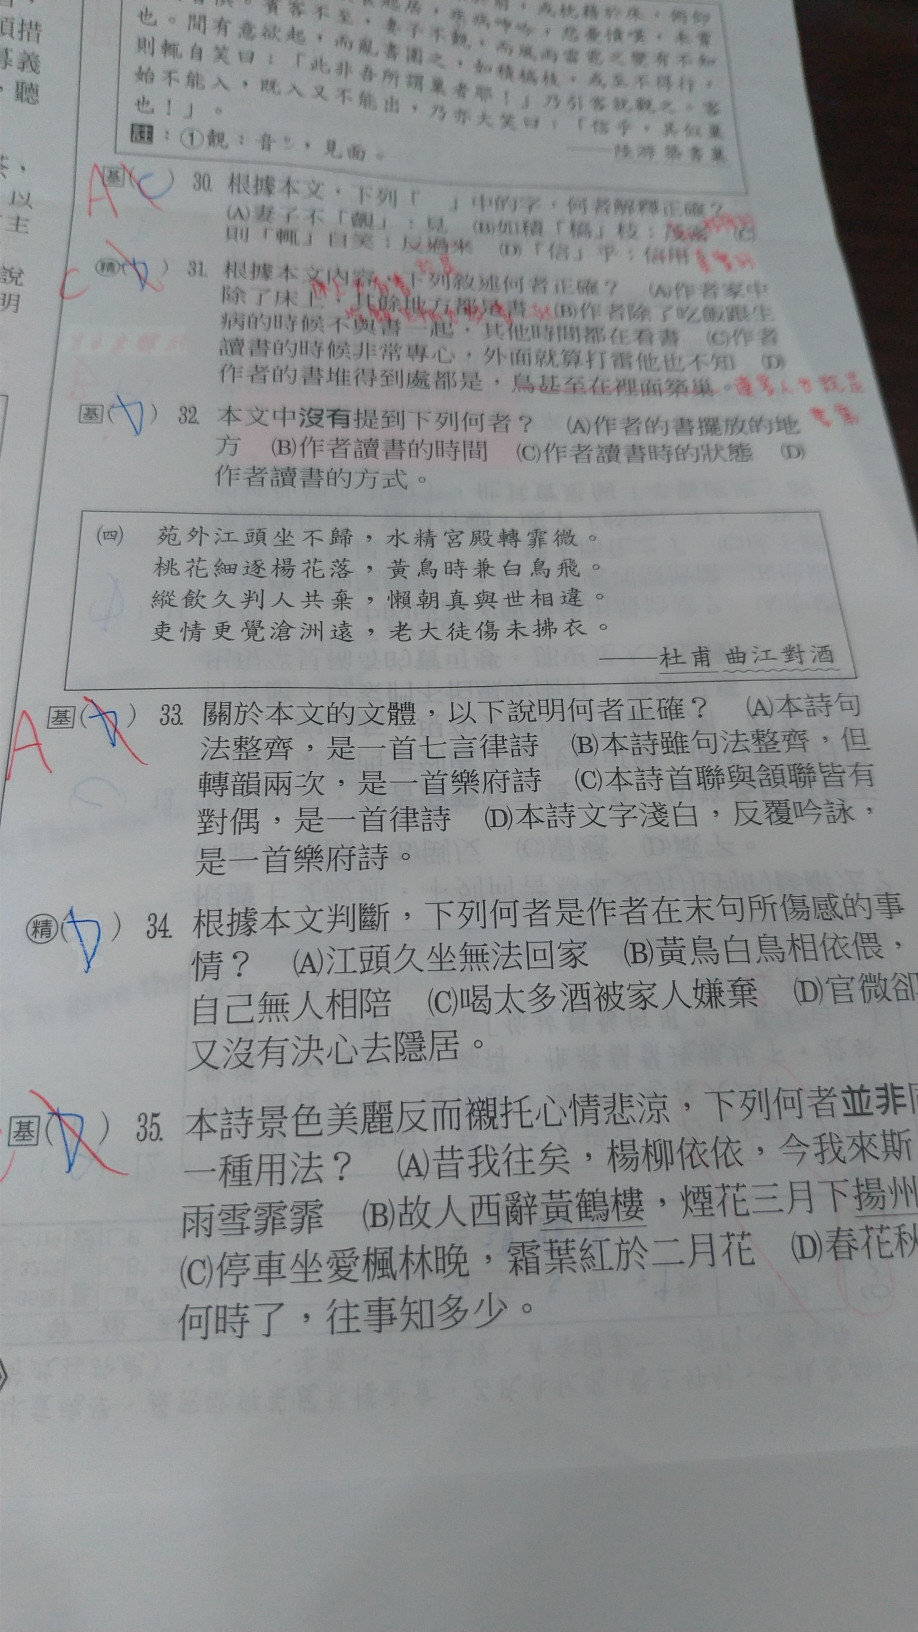 須措
募義
，聽
以
主
說
明
起居，疾病呻吟，悲憂憤嘆，未嘗
也。間有意欲起，而亂書圍之，如積槁枝，或至不得行，
則輒自笑曰：「此非吾所謂巢者耶！」乃引客就觀之。客
始不能入，既入又不能出，乃亦大笑曰：「信乎，其似巢
也！」。
——陸游 築書巢
註：①覿：音ㄉㄧˊ，見面。
A
基(C) 30. 根據本文，下列「　」中的字，何者解釋正確？
(A)妻子不「覿」：見　(B)如積「槁」枝：茂密　(C)
則「輒」自笑：反過來　(D)「信」乎：信用
C
精(D) 31. 根據本文內容，下列敘述何者正確？　(A)作者家中
除了床上，其餘地方都是書　(B)作者除了吃飯跟生
病的時候不與書一起，其他時間都在看書　(C)作者
讀書的時候非常專心，外面就算打雷他也不知　(D)
作者的書堆得到處都是，鳥甚至在裡面築巢。
基(D) 32. 本文中沒有提到下列何者？　(A)作者的書擺放的地
方　(B)作者讀書的時間　(C)作者讀書時的狀態　(D)
作者讀書的方式。
(四) 苑外江頭坐不歸，水精宮殿轉霏微。
桃花細逐楊花落，黃鳥時兼白鳥飛。
縱飲久判人共棄，懶朝真與世相違。
吏情更覺滄洲遠，老大徒傷未拂衣。
——杜甫 曲江對酒
A
基(D) 33. 關於本文的文體，以下說明何者正確？　(A)本詩句
法整齊，是一首七言律詩　(B)本詩雖句法整齊，但
轉韻兩次，是一首樂府詩　(C)本詩首聯與頷聯皆有
對偶，是一首律詩　(D)本詩文字淺白，反覆吟詠，
是一首樂府詩。
精(D) 34. 根據本文判斷，下列何者是作者在末句所傷感的事
情？　(A)江頭久坐無法回家　(B)黃鳥白鳥相依偎，
自己無人相陪　(C)喝太多酒被家人嫌棄　(D)官微卻
又沒有決心去隱居。
基(D) 35. 本詩景色美麗反而襯托心情悲涼，下列何者並非同
一種用法？　(A)昔我往矣，楊柳依依，今我來斯，
雨雪霏霏　(B)故人西辭黃鶴樓，煙花三月下揚州
(C)停車坐愛楓林晚，霜葉紅於二月花　(D)春花秋
何時了，往事知多少。